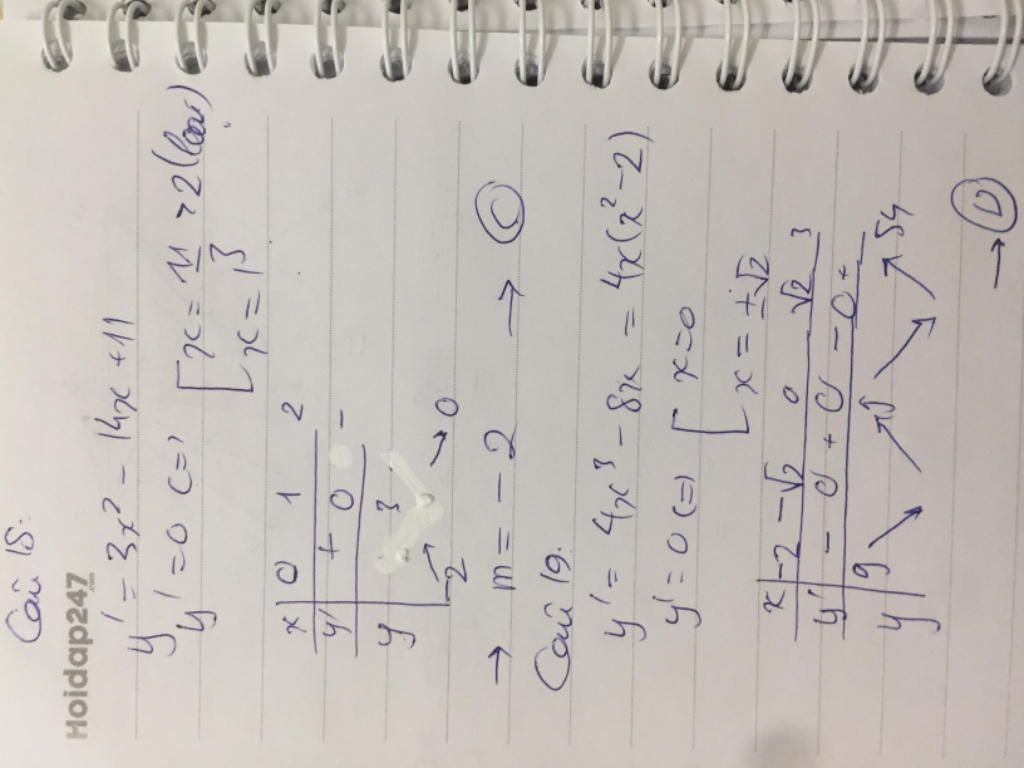 Câu 18:
Hoidap247.com
y' = 3x² - 14x + 11
y' = 0 (=) [ x = 11/3 > 2 (loại)
x = 1
x | 0 1 2
y' | + 0 -
y | -2 ↗ 3 ↘ 0
→ m = -2 → C
Câu 19:
y' = 4x³ - 8x = 4x(x² - 2)
y' = 0 (=) [ x = 0
x = ±√2
x | -2 -√2 0 √2 3
y' | - 0 + 0 - 0 +
y | 9 ↘ ↗ ↘ ↗ 54
→ D